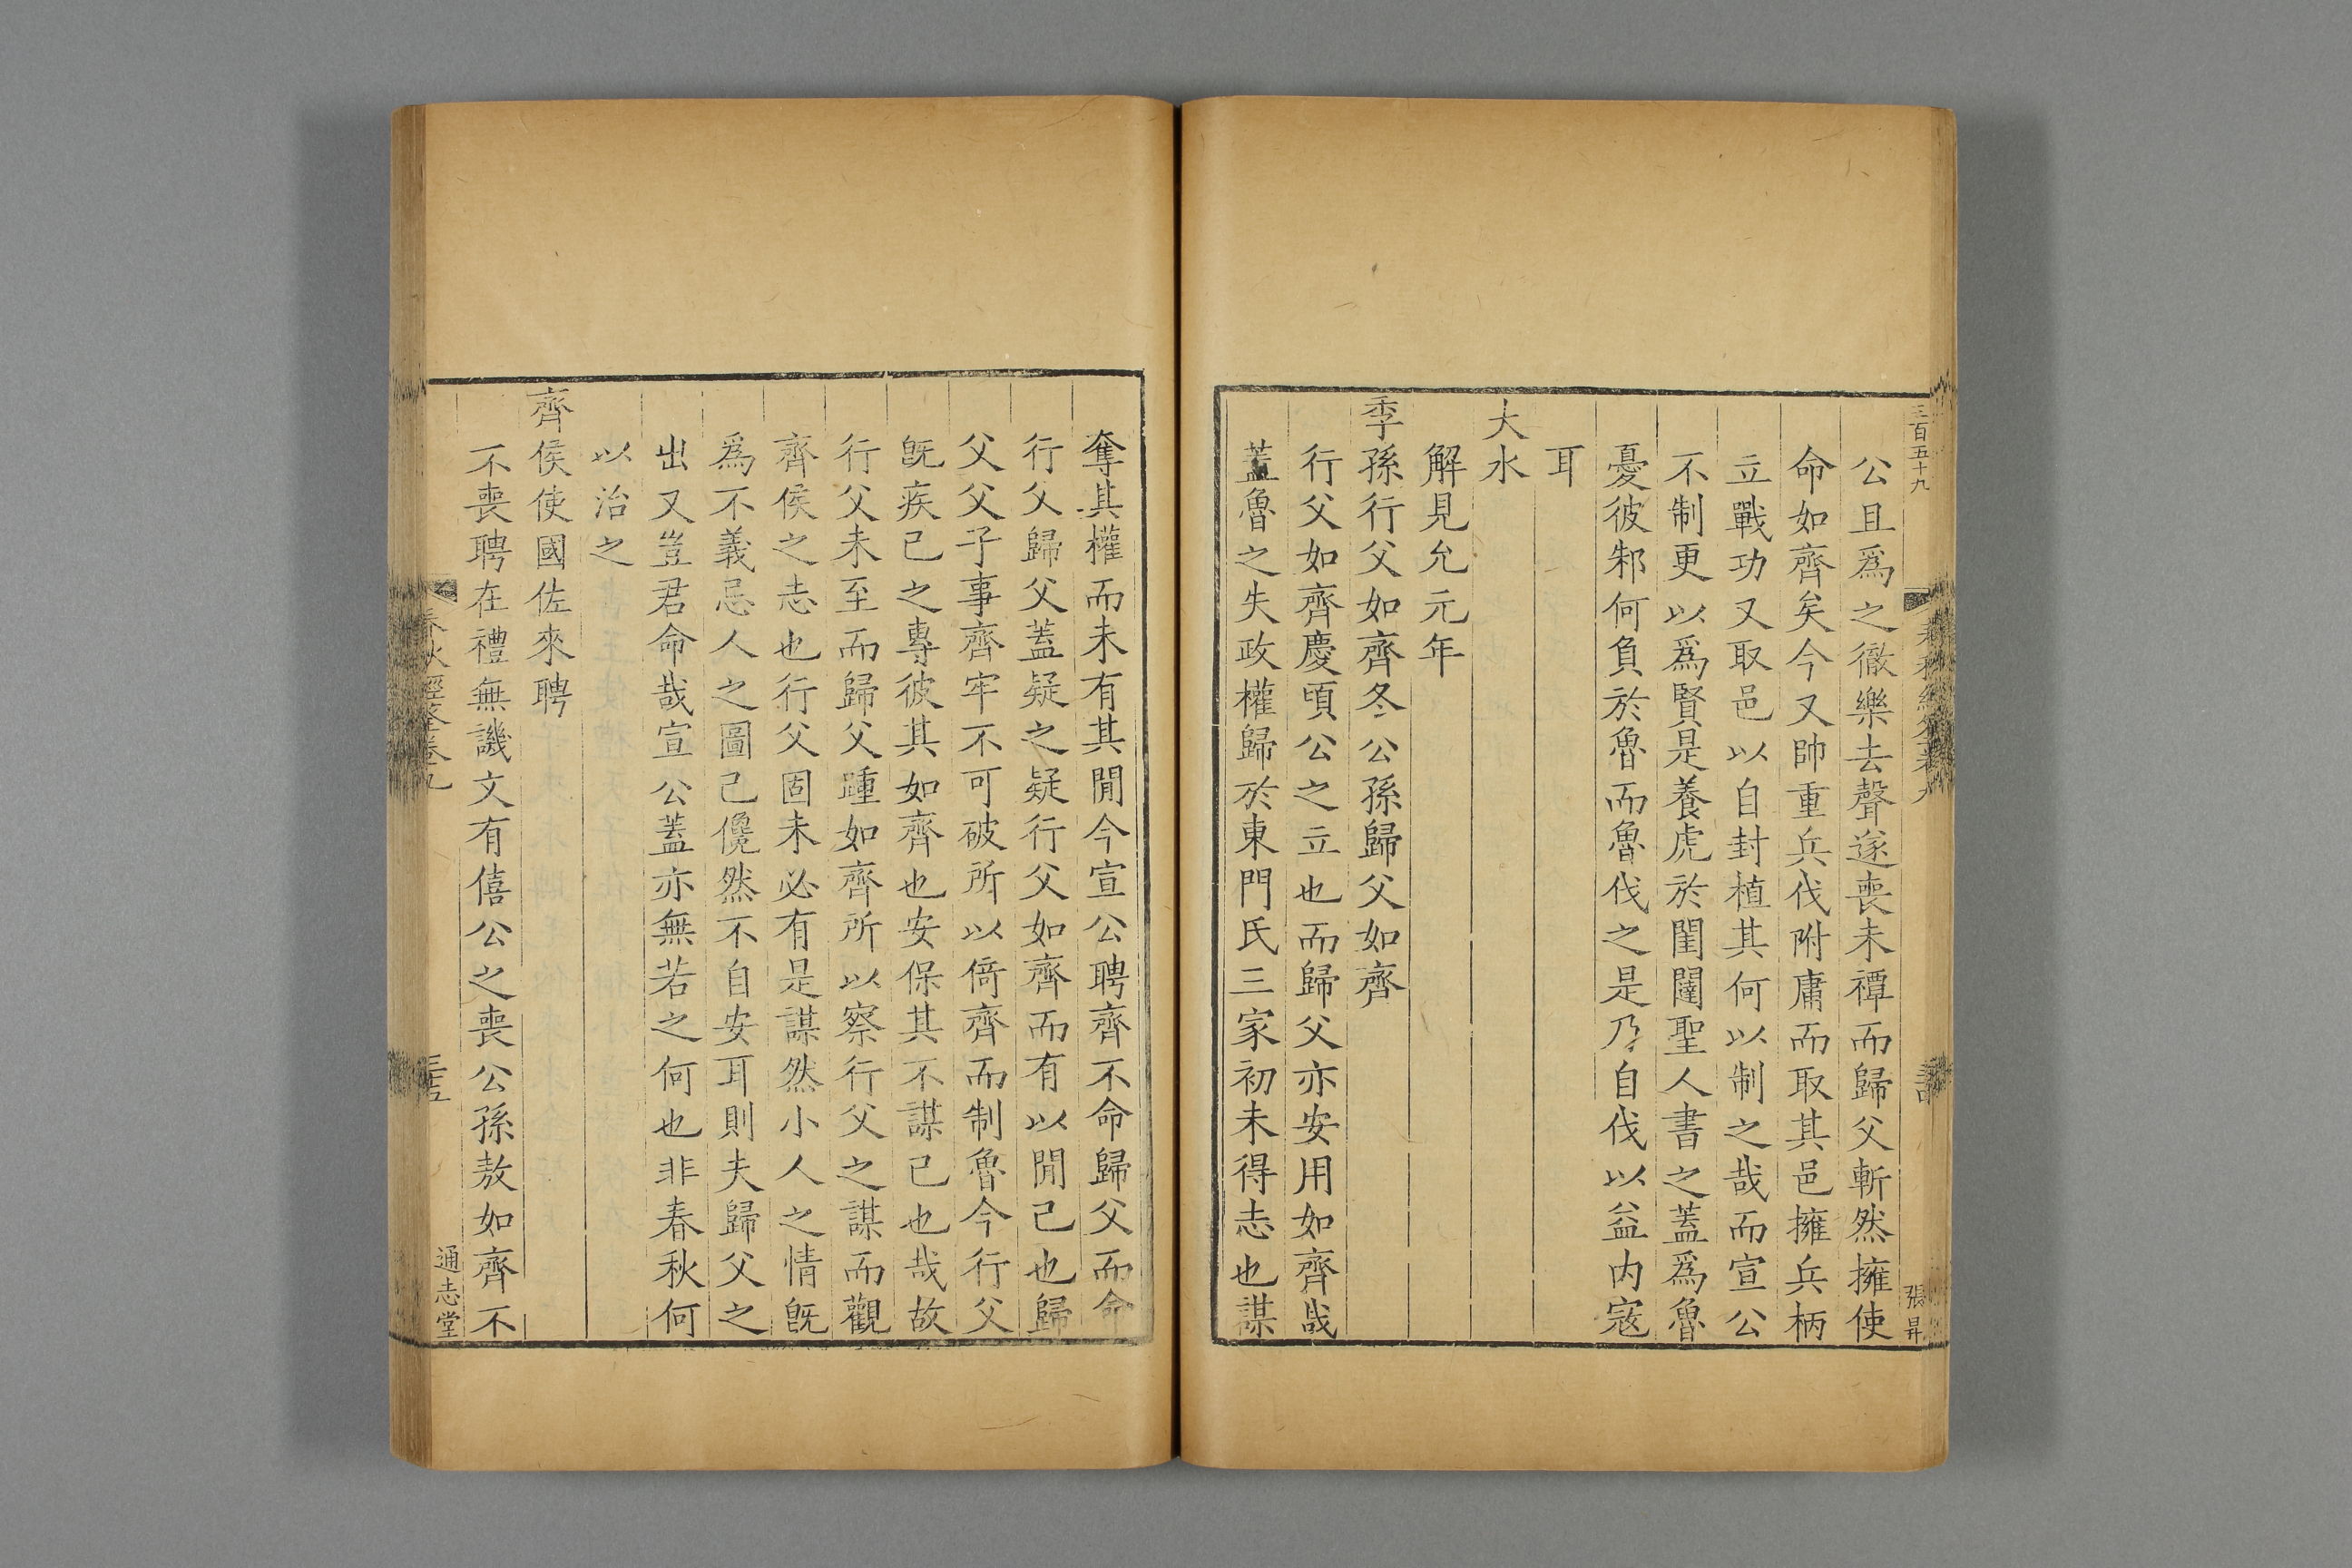 三百五十九
張昇
公且爲之徹樂去聲遂喪未禫而歸父斬然擁使
命如齊矣今又帥重兵伐附庸而取其邑擁兵柄
立戰功又取邑以自封植其何以制之哉而宣公
不制更以爲賢是養虎於閨闥聖人書之蓋爲魯
憂彼邾何負於魯而魯伐之是乃自伐以益内寇
耳
大水
解見允元年
季孫行父如齊冬公孫歸父如齊
行父如齊慶頃公之立也而歸父亦安用如齊哉
蓋魯之失政權歸於東門氏三家初未得志也謀
奪其權而未有其閒今宣公聘齊不命歸父而命
行父歸父蓋疑之疑行父如齊而有以閒己也歸
父父子事齊牢不可破所以倚齊而制魯今行父
旣疾己之專彼其如齊也安保其不謀己也哉故
行父未至而歸父踵如齊所以察行父之謀而觀
齊侯之志也行父固未必有是謀然小人之情旣
爲不義忌人之圖己儳然不自安耳則夫歸父之
出又豈君命哉宣公蓋亦無若之何也非春秋何
以治之
齊侯使國佐來聘
不喪聘在禮無譏文有僖公之喪公孫敖如齊不
春秋經筌卷九
三五
通志堂